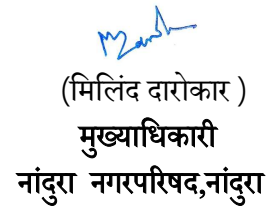 (मिलिंद दारोकार )
मुख्याधिकारी
नांदुरा नगरपरिषद,नांदुरा